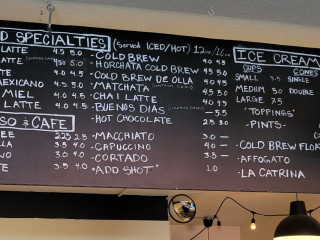 D SPECIALTIES (Served ICED/HOT) 12oz/16oz
LATTE 4.5 5.0
LATTE 4.0 4.5
TE 4.5 5.0
MEXICANO 4.5 5.0
MIEL 4.0 4.5
LATTE 4.0 4.5
-COLD BREW 4.0 4.5
-HORCHATA COLD BREW
-COLD BREW DE OLLA
-MATCHATA
-CHAI LATTE
-BUENOS DIAS
-HOT CHOCOLATE 2.5 3.0
SO & CAFE
EE 2.25 2.5
LA 3.5 4.0
NO 3.0
TE 3.5 4.0
-MACCHIATO 3.0 —
-CAPUCCINO 4.0 —
-CORTADO 3.5 —
"ADD SHOT" 1.0
ICE CREAM
CUPS CONES
SMALL 3.5 SINGLE
MEDIUM 5.0 DOUBLE
LARGE 7.5
"TOPPINGS"
-PINTS-
-COLD BREW FLOA
-AFFOGATO
-LA CATRINA